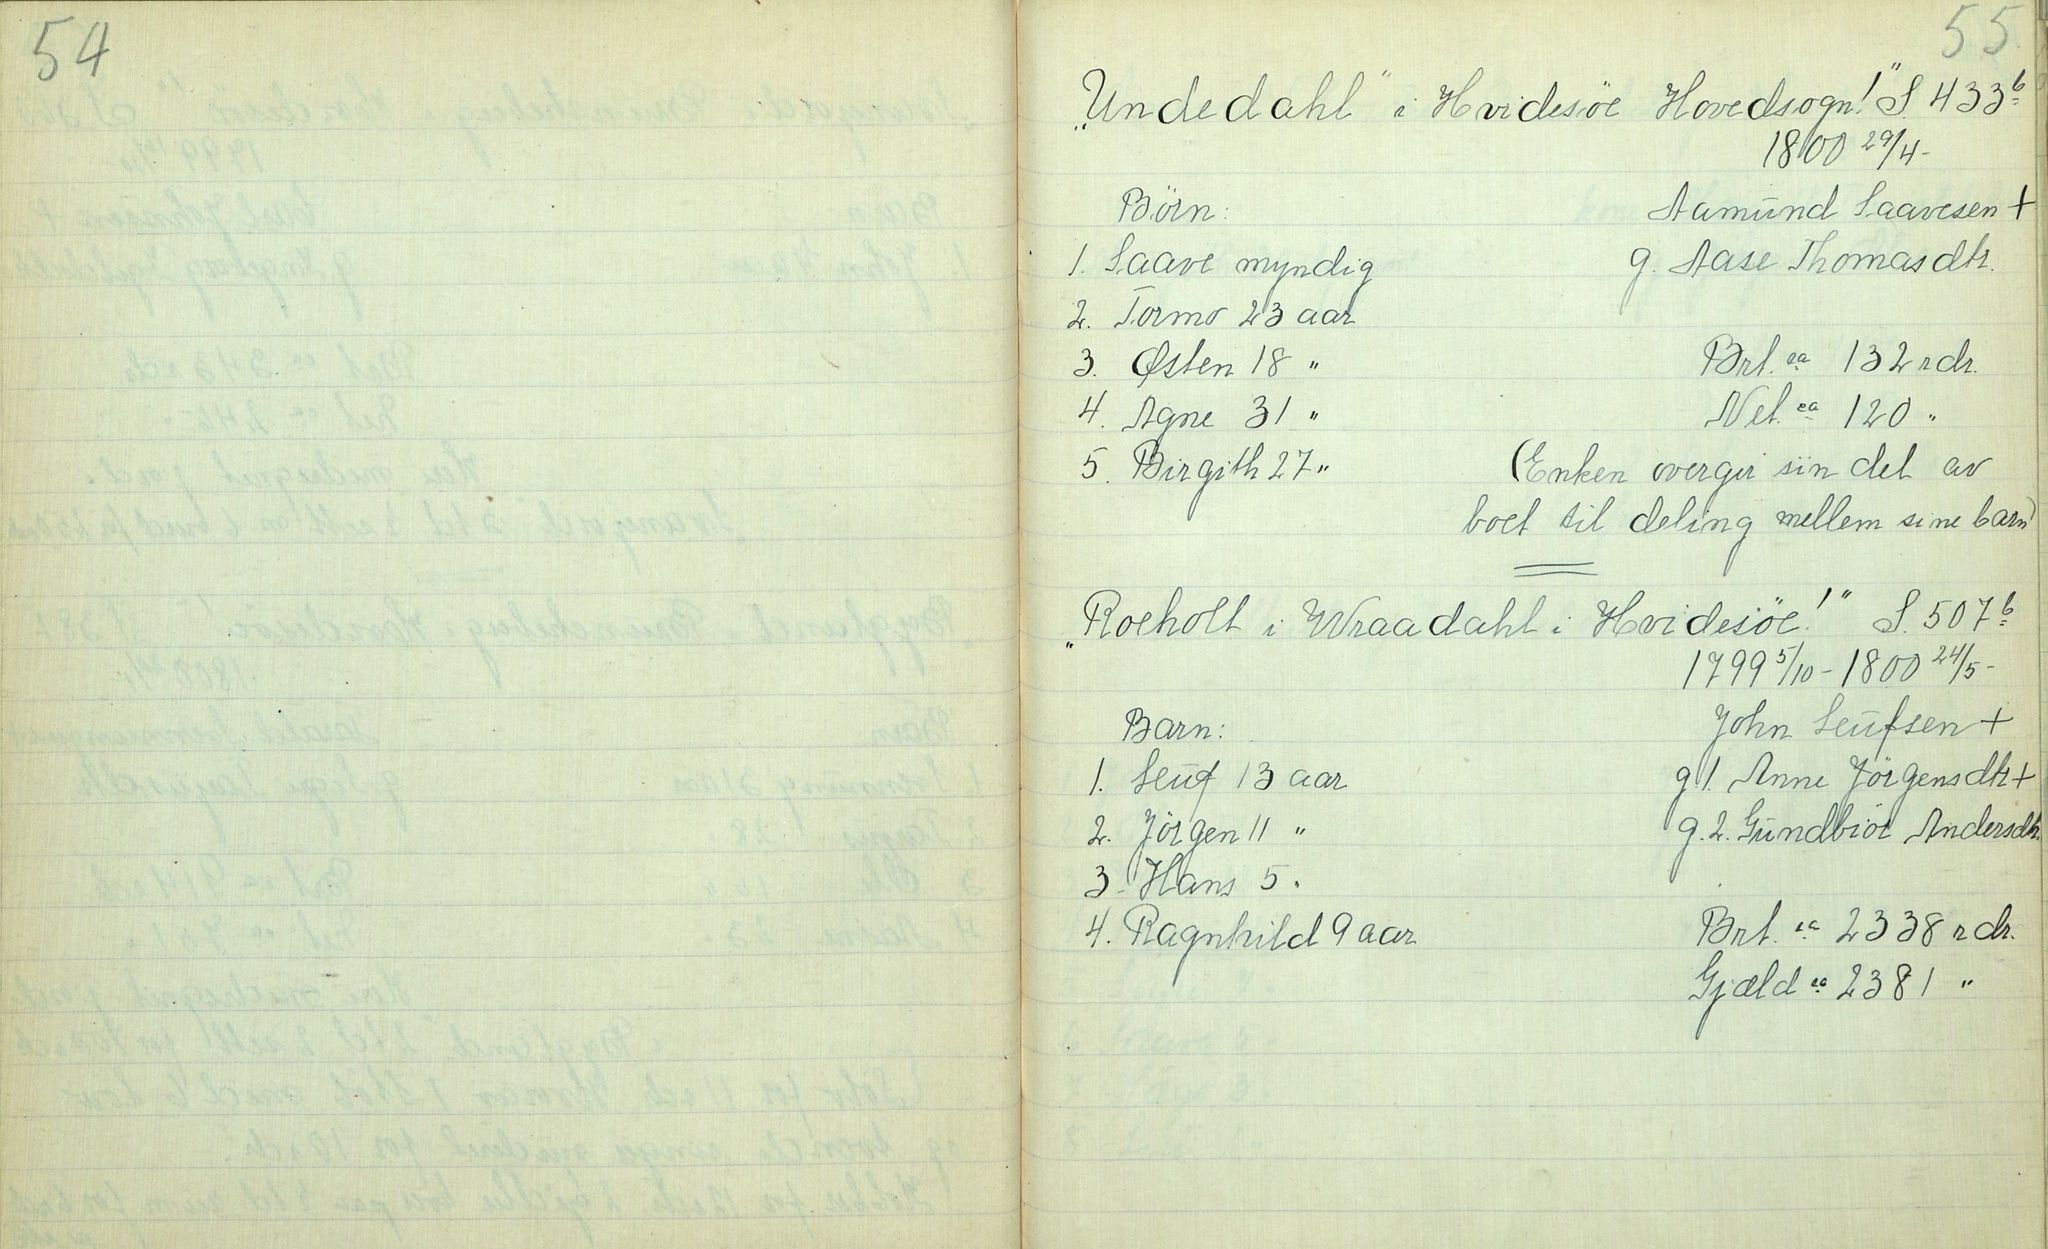 54
55.
„Undedahl" i Hvidesöe Hovedsogn!" S. 433b
1800 29/4-
Börn: Aamund Saavesen +
1. Saave myndig g. Aase Thomasdtr.
2. Tormo 23 aar
3. Østen 18 " Brt. ca 132 rdr.
4. Agne 31 " Net. ca 120 "
5. Birgith 27 " (Enken overgir sin del av
boet til deling mellem sine barn)
„Roeholt i Wraadahl i Hvidesöe!" S. 507b
1799 5/10 - 1800 24/5-
Barn: John Leufsen +
1. Leuf 13 aar g 1. Anne Jörgensdtr +
2. Jörgen 11 " g. 2. Gundbiör Andersdtr.
3. Hans 5 "
4. Ragnhild 9 aar Brt. ca 2338 rdr.
Gjæld ca 2381 "